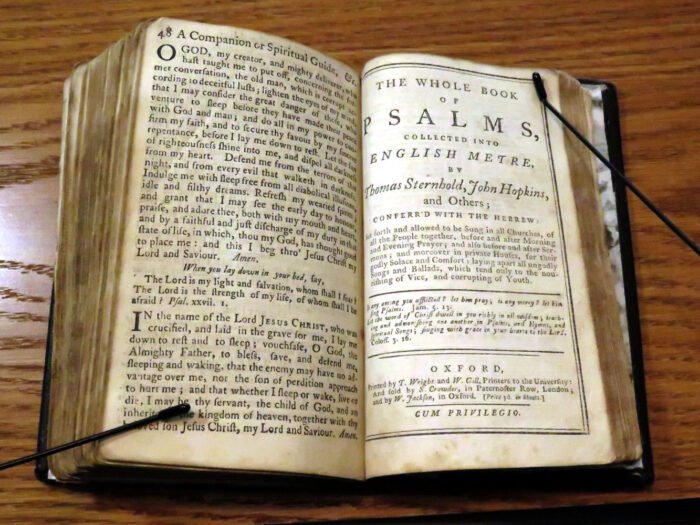 48 A Companion or Spiritual Guide, &c.
O GOD, my creator, and mighty deliverer, who
haſt taught me to put off, concerning the for-
mer converſation, the old man, which is corrupt ac-
cording to deceitful luſts; lighten the eyes of my mind,
that I may conſider the great danger of thoſe, who
venture to ſleep before they have made their peace
with God and man; and do all in my power to con-
firm my faith, and to ſecure thy favour by my ſincere
repentance, before I lay me down to reſt. Let the ſun
of righteouſneſs ſhine into me, and diſpel all darkneſs
from my heart. Defend me from the terrors of the
night, and from every evil that walketh in darkneſs.
Indulge me with ſleep free from all diabolical illuſions,
idle and filthy dreams. Refreſh my wearied ſpirits,
and grant that I may ſee the early day to honour,
praiſe, and adore thee, both with my mouth and heart;
and by a faithful and juſt diſcharge of my duty in that
ſtate of life, in which, thou my God, has thought good
to place me: and this I beg thro' Jeſus Chriſt my
Lord and Saviour. Amen.
When you lay down in your bed, ſay,
The Lord is my light and ſalvation, whom ſhall I fear?
The Lord is the ſtrength of my life, of whom ſhall I be
afraid? Pſal. xxvii. 1.
IN the name of the Lord JESUS CHRIST, who was
crucified, and laid in the grave for me, I lay me
down to reſt and to ſleep; vouchſafe, O God, the
Almighty Father, to bleſs, ſave, and defend me,
ſleeping and waking, that the enemy may have no ad-
vantage over me, nor the ſon of perdition approach
to hurt me; and that whether I ſleep or wake, live or
die, I may be thy ſervant, the child of God, and an
inherit the kingdom of heaven, together with thy
beloved ſon Jeſus Chriſt, my Lord and Saviour. Amen.
THE WHOLE BOOK
OF
PSALMS,
COLLECTED INTO
ENGLISH METRE,
BY
Thomas Sternhold, John Hopkins,
and Others;
CONFERR'D WITH THE HEBREW:
Set forth and allowed to be Sung in all Churches, of
all the People together, before and after Morning
and Evening Prayer; and alſo before and after Ser-
mons; and moreover in private Houſes, for their
godly Solace and Comfort; laying apart all ungodly
Songs and Ballads, which tend only to the nou-
riſhing of Vice, and corrupting of Youth.
Is any among you afflicted? let him pray; is any merry? let him
ſing Pſalms. Jam. 5. 13.
Let the word of Chriſt dwell in you richly in all wiſdom; teach-
ing and admoniſhing one another in Pſalms, and Hymns, and
Spiritual Songs; ſinging with grace in your hearts to the Lord.
Coloſſ. 3. 16.
OXFORD,
Printed by T. Wright and W. Gill, Printers to the Univerſity:
And ſold by S. Crowder, in Paternoſter Row, London;
and by W. Jackſon, in Oxford. [Price 3d. in Sheets.]
CUM PRIVILEGIO.